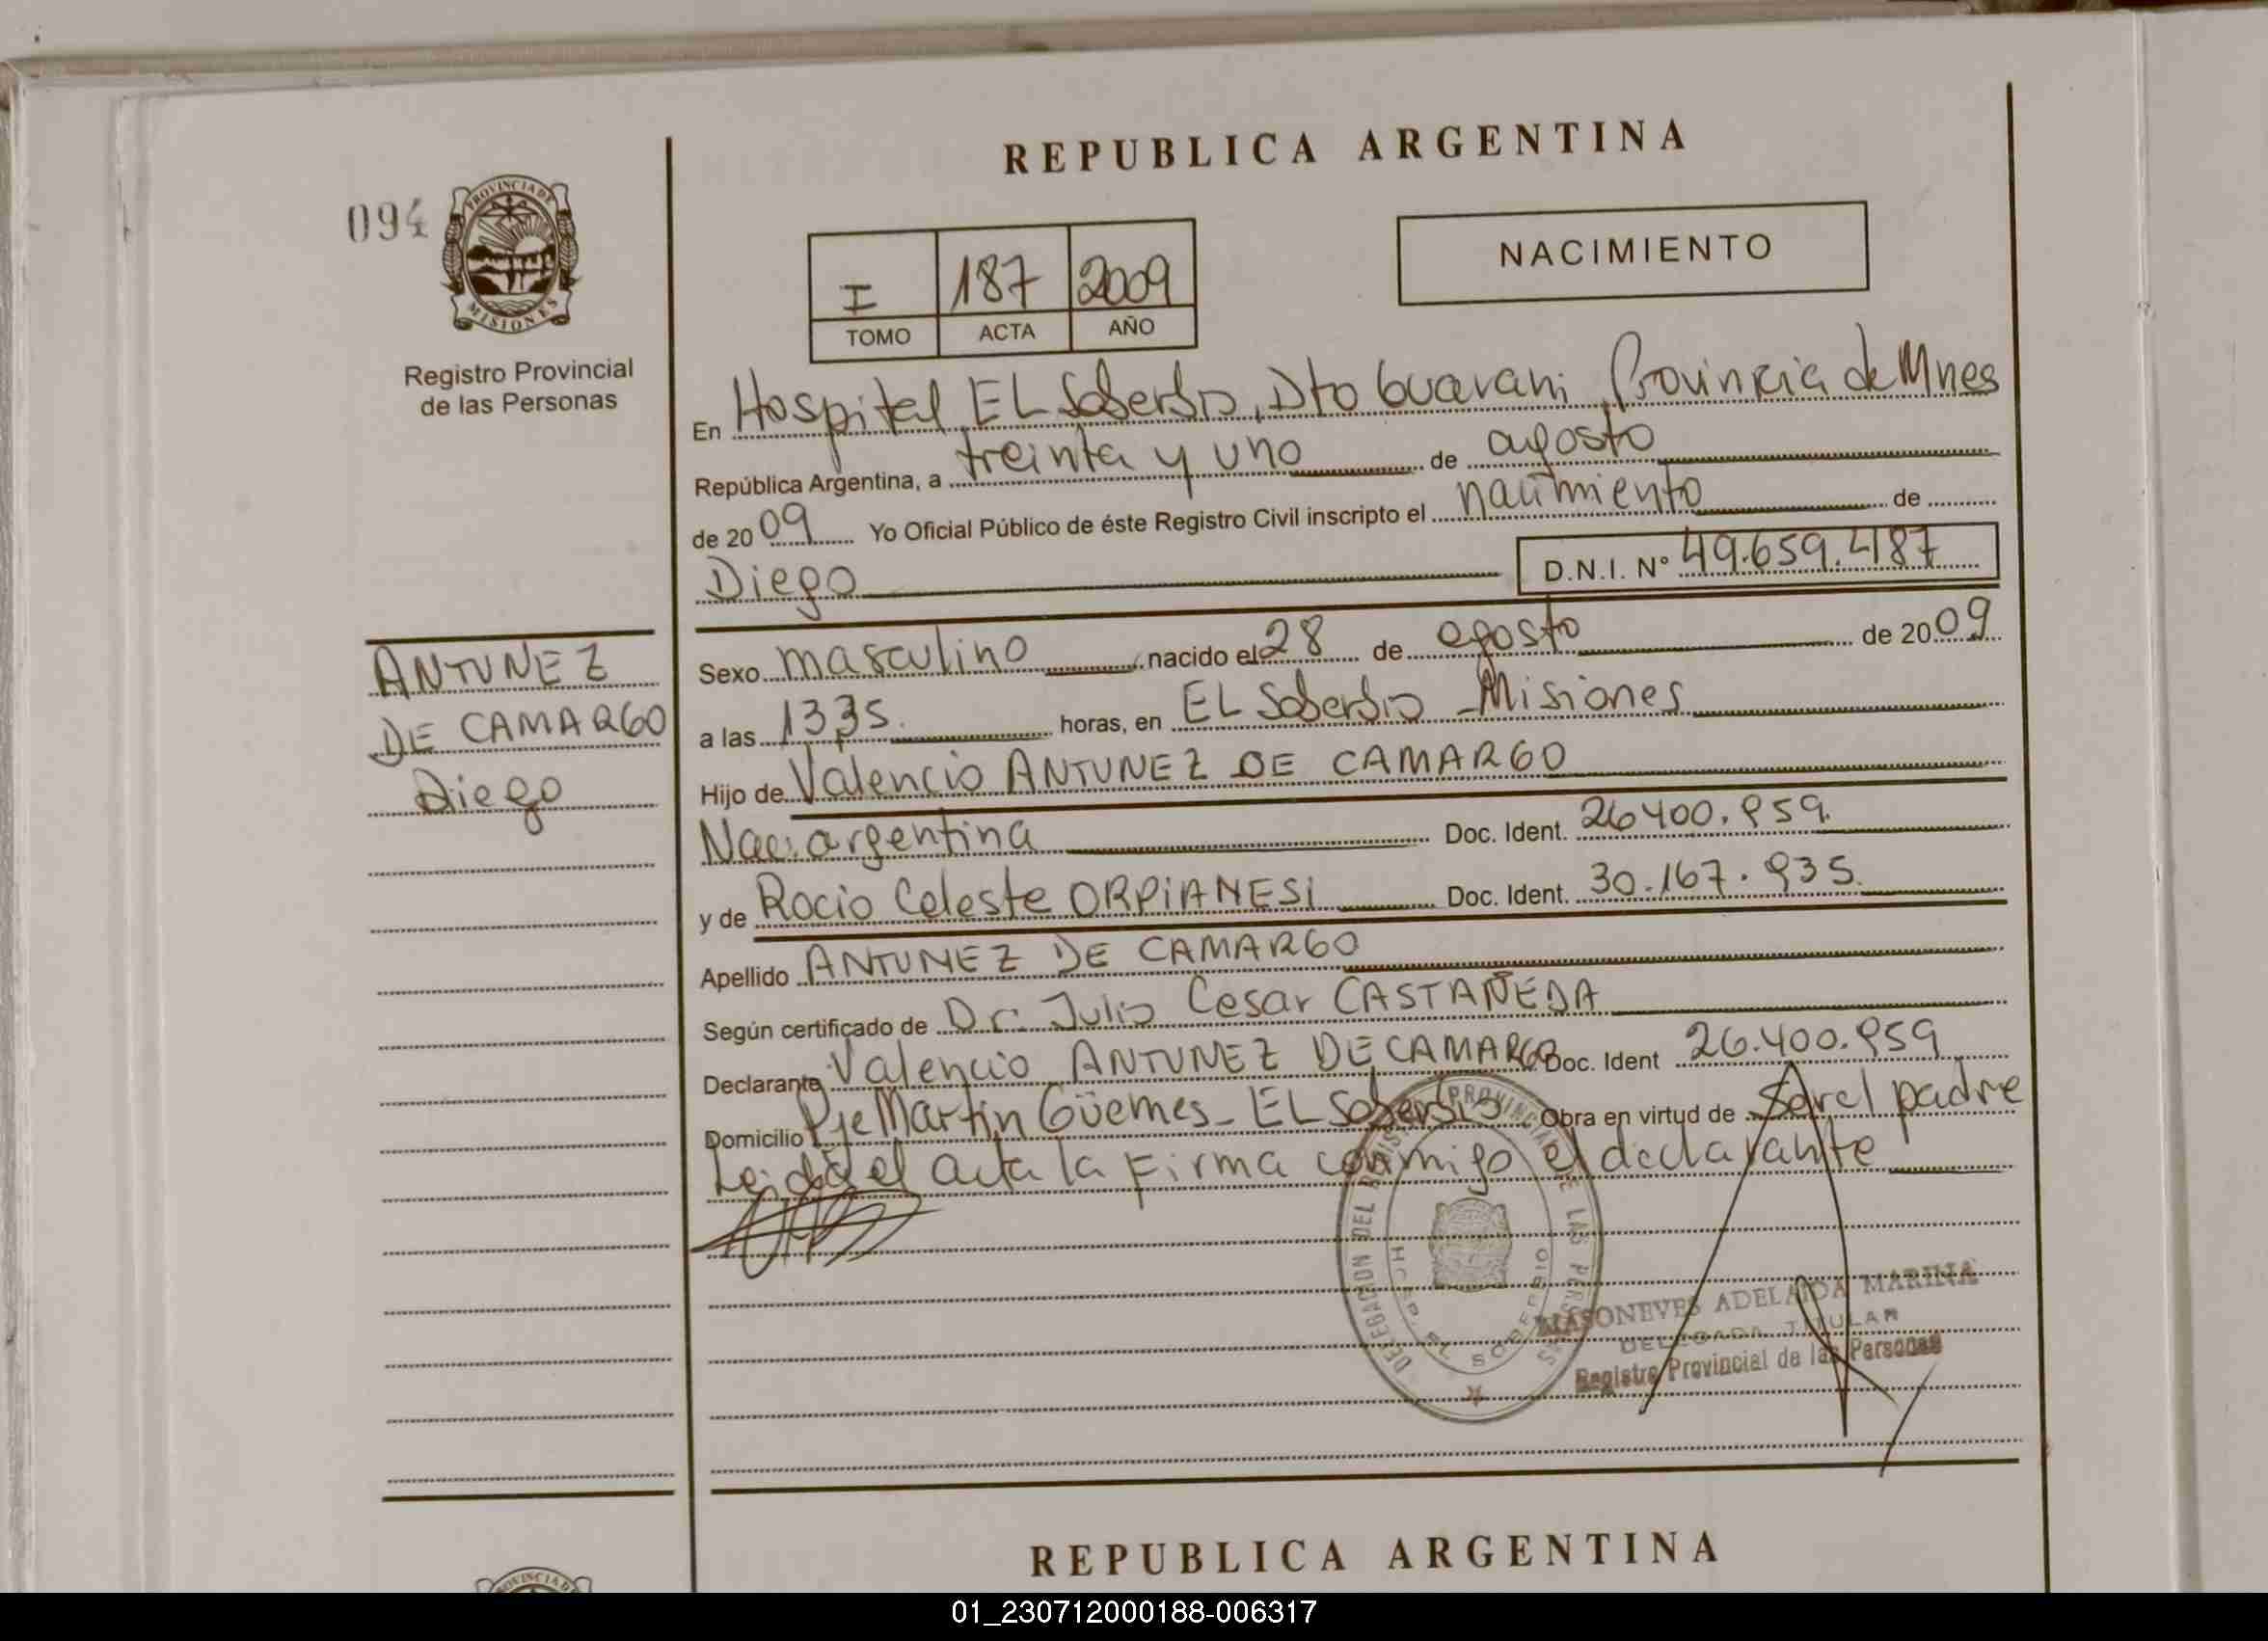 REPUBLICA ARGENTINA
094
PROVINCIA DE
MISIONES
Registro Provincial
de las Personas
I 187 2009
TOMO ACTA AÑO
NACIMIENTO
En Hospital EL Soberbio, Dto Guarani Provincia de Mnes
República Argentina, a treinta y uno de agosto
de 2009 Yo Oficial Público de éste Registro Civil inscripto el nacimiento de
Diego D.N.I. Nº 49.659.487
ANTUNEZ
DE CAMARGO
Diego
Sexo masculino nacido el 28 de agosto de 2009
a las 1335 horas, en EL Soberbio - Misiones
Hijo de Valencio ANTUNEZ DE CAMARGO
Nac: argentina Doc. Ident. 26400.959.
y de Rocio Celeste ORPIANESI Doc. Ident. 30.167.935.
Apellido ANTUNEZ DE CAMARGO
Según certificado de Dr. Julio Cesar CASTAÑEDA
Declarante Valencio ANTUNEZ DE CAMARGO Doc. Ident 26.400.959
Domicilio Pje Martin Güemes - EL Soberbio Obra en virtud de Ser el padre
Leida el acta la firma conmigo el declarante
DELEGACION DEL REGISTRO PROVINCIAL DE LAS PERSONAS
EL SOBERBIO
MASONEVES ADELAIDA MARINA
DELEGADA TITULAR
Registro Provincial de las Personas
REPUBLICA ARGENTINA
PROVINCIA DE
01_230712000188-006317